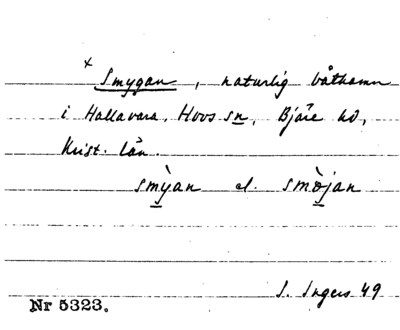 x
Smygan, naturlig båthamn
i Hallavara, Hovs sn, Bjäre hd,
Krist. län.
smỳan el. smø̀jan
S. Ingers 49
Nr 5323.